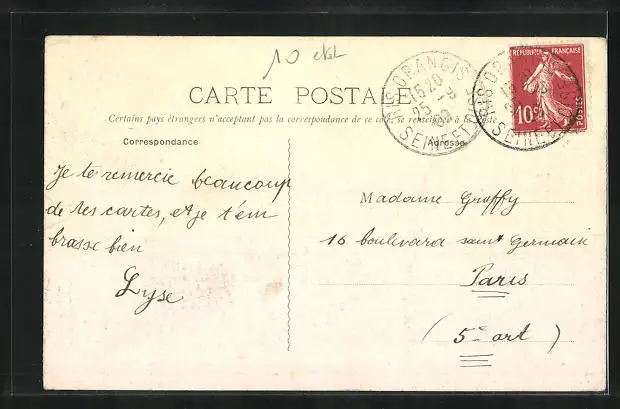 10 etal
CARTE POSTALE
Certains pays étrangers n'acceptant pas la correspondance de ce côté, se renseigner à la Poste
Correspondance
Adresse
RIS-ORANGIS
15 20
25 - 9
SEINE ET OISE
REPUBLIQUE FRANÇAISE
10c
POSTES
Je te remercie beaucoup
de tes cartes, et je t'em
brasse bien
Lyse
Madame Graffy
16 boulevard saint Germain
Paris
(5e art)